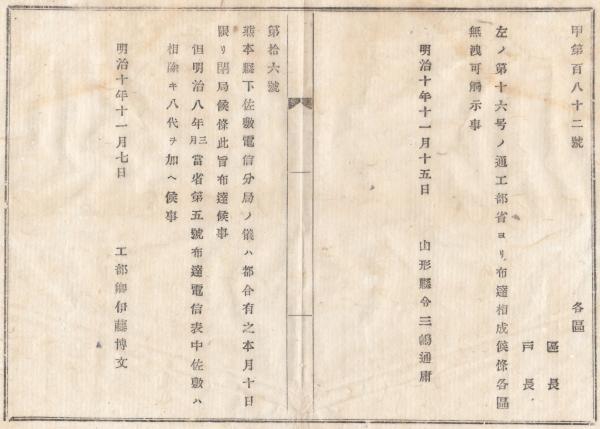 甲第百八十二號
各區
區長
戸長
左ノ第十六号ノ通工部省ヨリ布達相成候條各區
無洩可觸示事
明治十年十一月十五日
山形縣令三島通庸
第拾六號
熊本縣下佐敷電信分局ノ儀ハ都合有之本月十日
限リ閉局候條此旨布達候事
但明治八年三月當省第五號布達電信表中佐敷ハ
相除キ八代ヲ加ヘ候事
明治十年十一月七日
工部卿伊藤博文